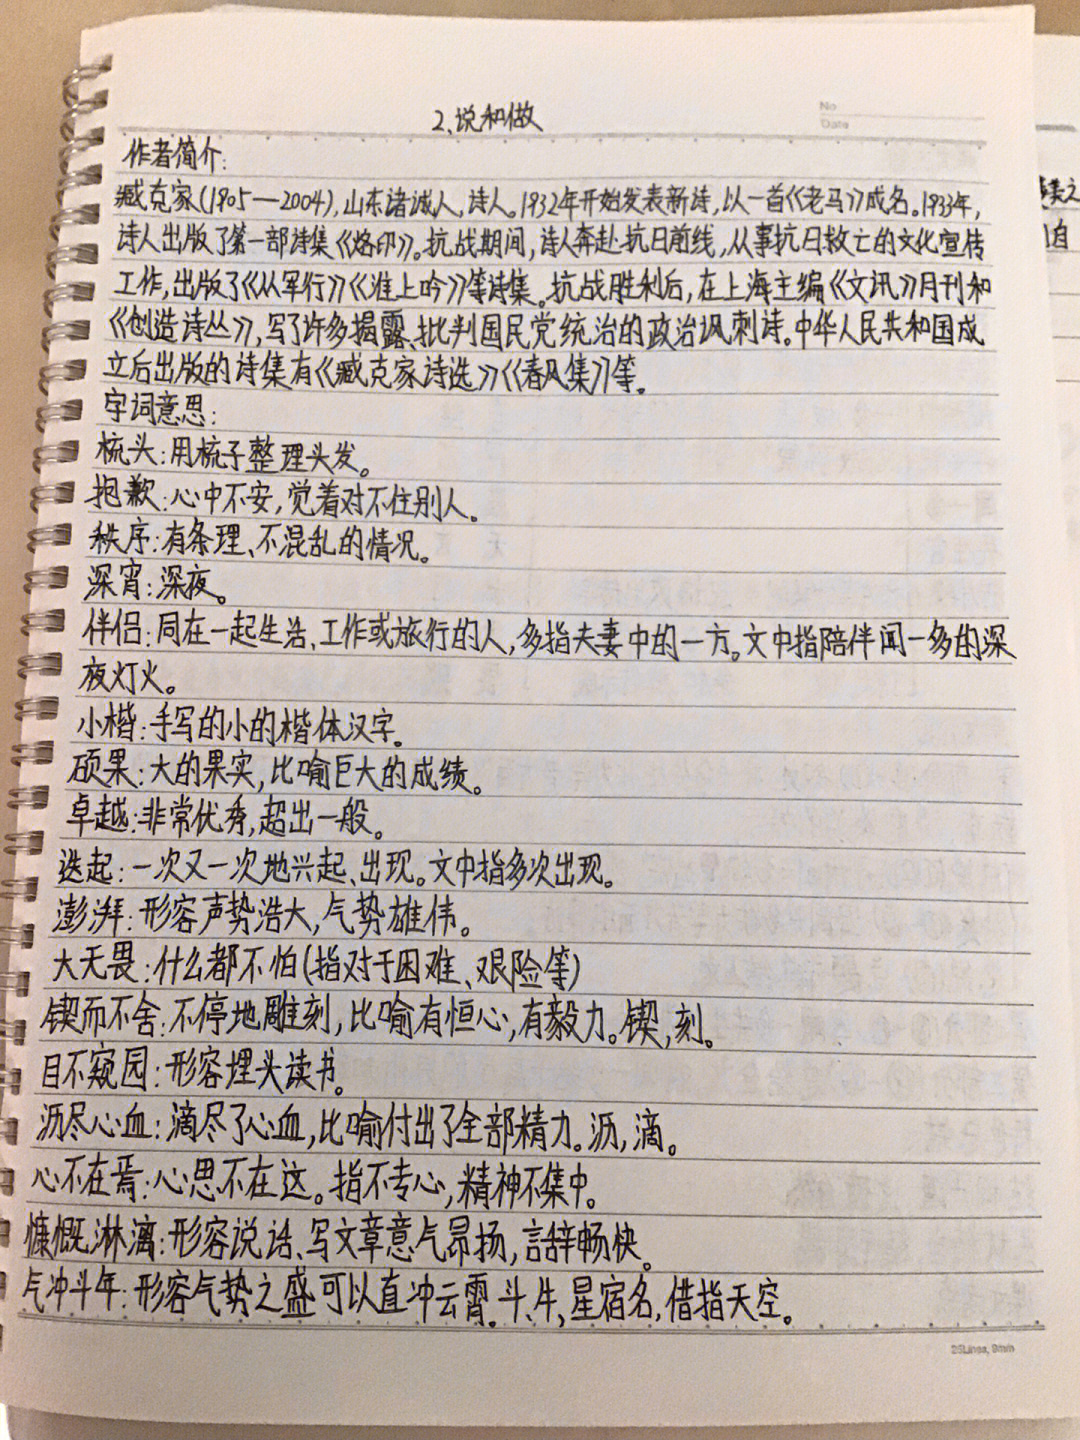 No
Date
2、说和做
作者简介:
臧克家(1905—2004),山东诸诚人,诗人。1932年开始发表新诗,以一首《老马》成名。1933年,
诗人出版了第一部诗集《烙印》。抗战期间,诗人奔赴抗日前线,从事抗日救亡的文化宣传
工作,出版了《从军行》《淮上吟》等诗集。抗战胜利后,在上海主编《文讯》月刊和
《创造诗丛》,写了许多揭露、批判国民党统治的政治讽刺诗。中华人民共和国成
立后出版的诗集有《臧克家诗选》《春风集》等。
字词意思:
梳头:用梳子整理头发。
抱歉:心中不安,觉着对不住别人。
秩序:有条理、不混乱的情况。
深宵:深夜。
伴侣:同在一起生活、工作或旅行的人,多指夫妻中的一方。文中指陪伴闻一多的深
夜灯火。
小楷:手写的小的楷体汉字。
硕果:大的果实,比喻巨大的成绩。
卓越:非常优秀,超出一般。
迭起:一次又一次地兴起、出现。文中指多次出现。
澎湃:形容声势浩大,气势雄伟。
大无畏:什么都不怕(指对于困难、艰险等)
锲而不舍:不停地雕刻,比喻有恒心,有毅力。锲,刻。
目不窥园:形容埋头读书。
沥尽心血:滴尽了心血,比喻付出了全部精力。沥,滴。
心不在焉:心思不在这。指不专心,精神不集中。
慷慨淋漓:形容说话、写文章意气昂扬,言辞畅快。
气冲斗牛:形容气势之盛可以直冲云霄。斗、牛,星宿名,借指天空。
25Lines, 9mm